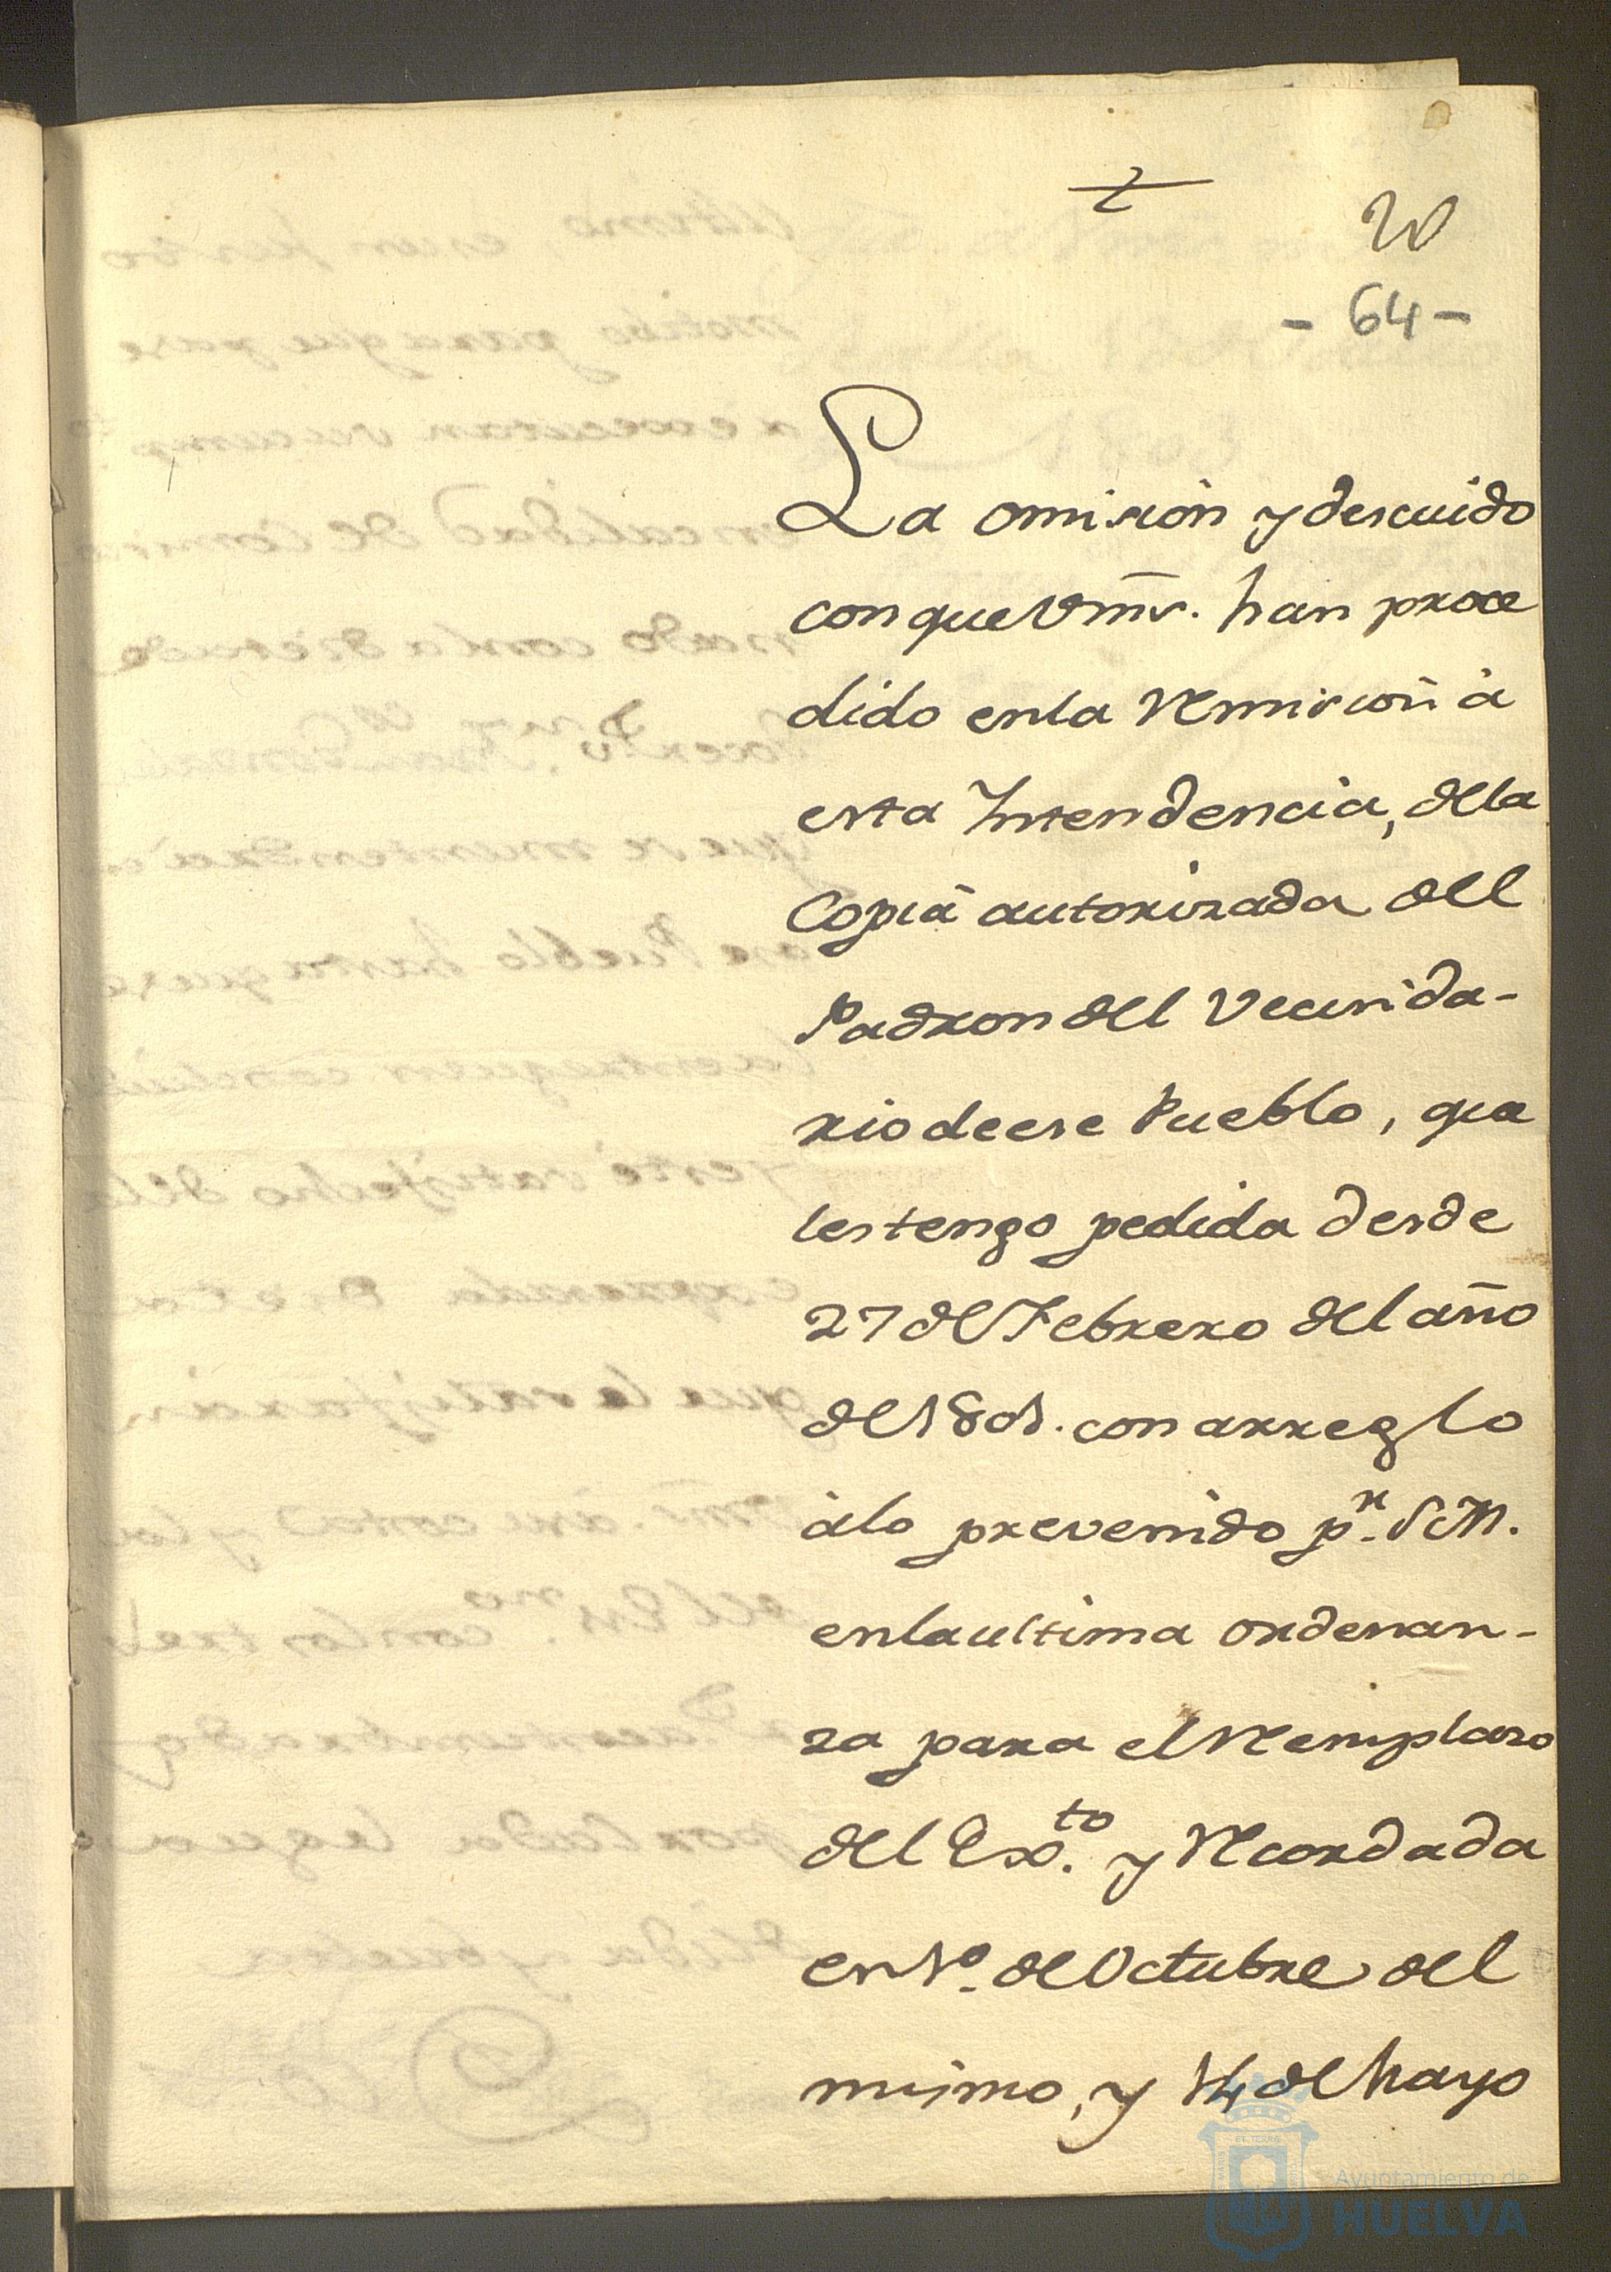 20
- 64 -
La omision y descuido
con que Vms. han proce
dido en la Remision à
esta Yntendencia, de la
Copia autorizada del
Padron del Vecinda-
rio de ese Pueblo, qua
les tengo pedida desde
27 de Febrero del año
de 1801. con arreglo
à lo prevenido pr. S.M.
en la ultima ordenan-
za para el Remplazo
del Exto. y Recordada
en 1º. de Octubre del
mismo, y 14 de Mayo
Ayuntamiento de
HUELVA